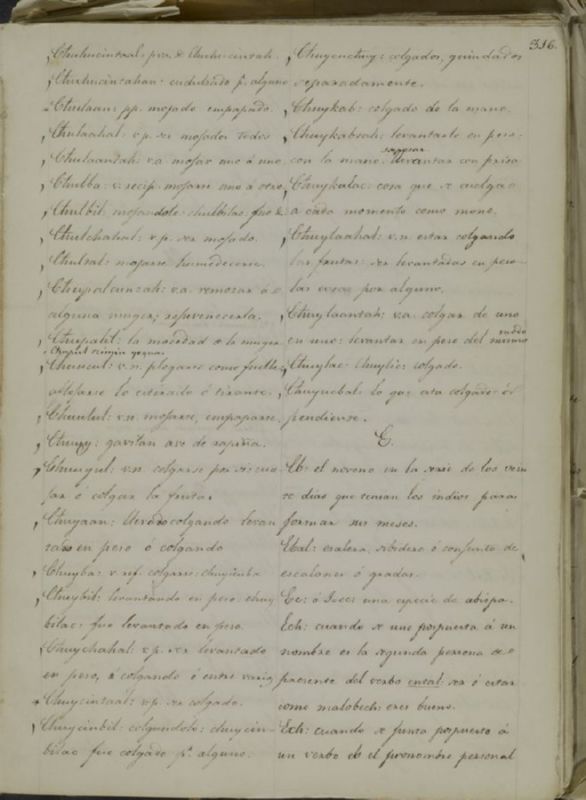 316.
Chulucintaal: pas. de chulucintah.
Chulucintahan: endulzado pr. alguno
Chulaan: pp. mojado empapado.
Chulaahal: v.p. ser mojados todos
Chulaantah: v.a. mojar uno á uno
Chulba: v. recip. mojarse uno á otro
Chulbil: mojandole: chulbilac: fue
Chulchahal: v.p. ser mojado.
Chultal: mojarse humedecerse.
Chupalcunzah: v.a. remozar á
alguna muger, rejuvenecerla.
Chupalil: la mocedad de la muger
Chuncul: v.n. plegarse como fuelle
aflojarse lo estirado ó tirante.
Chuulul: v.n. mojarse, empaparse
Chuuy: gavilan ave de rapiña.
Chuuyul: v.n. colgarse por si:
sar ó colgar la frutar
Chuyaan: colgando levan
tado en peso ó colgando
Chuyba: v. ref. colgarse: chuyienba
Chuybil: levantando en peso: chuy
bilac: fue levantado en peso.
Chuychahal: v.p. ser levantado
en peso, ó colgando ó entre varios
Chuycintaal: v.p. ser colgado.
Chuycinbil: colgandolo: chuycin-
bilac fue colgado pr. alguno.
Chuyenchuy: colgados, guindados
separadamente.
Chuykab: colgado de la mano.
Chuykabtah: levantarlo en peso
con la mano: levantar con prisa
Chuykalac: cosa que se cuelga
a cada momento como mono.
Chuylaahal: v.n. estar colgando
las frutas: ser levantadas en peso
las cosas por alguno.
Chuylaantah: v.a. colgar de uno
en uno: levantar en peso del mismo
Chuylac: chuylic: colgado.
Chuyucbal: lo que esta colgado ó
pendiente.
E.
Eb: el noveno en la serie de los vein
te dias que tenian los indios para
formar sus meses.
Ebal: escalera, subidero ó conjunto de
escalones ó gradas.
Ec: ó una especie de abispa.
Ech: cuando se une pospuesta á un
nombre es la segunda persona de
presente del verbo ental: ser ó estar
como malobech: eres bueno.
Ech: cuando se junta pospuesto á
un verbo es el pronombre personal